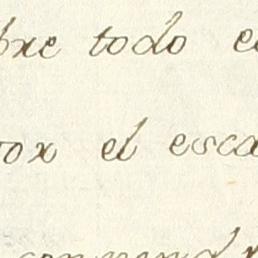 bre todo e
or el esca